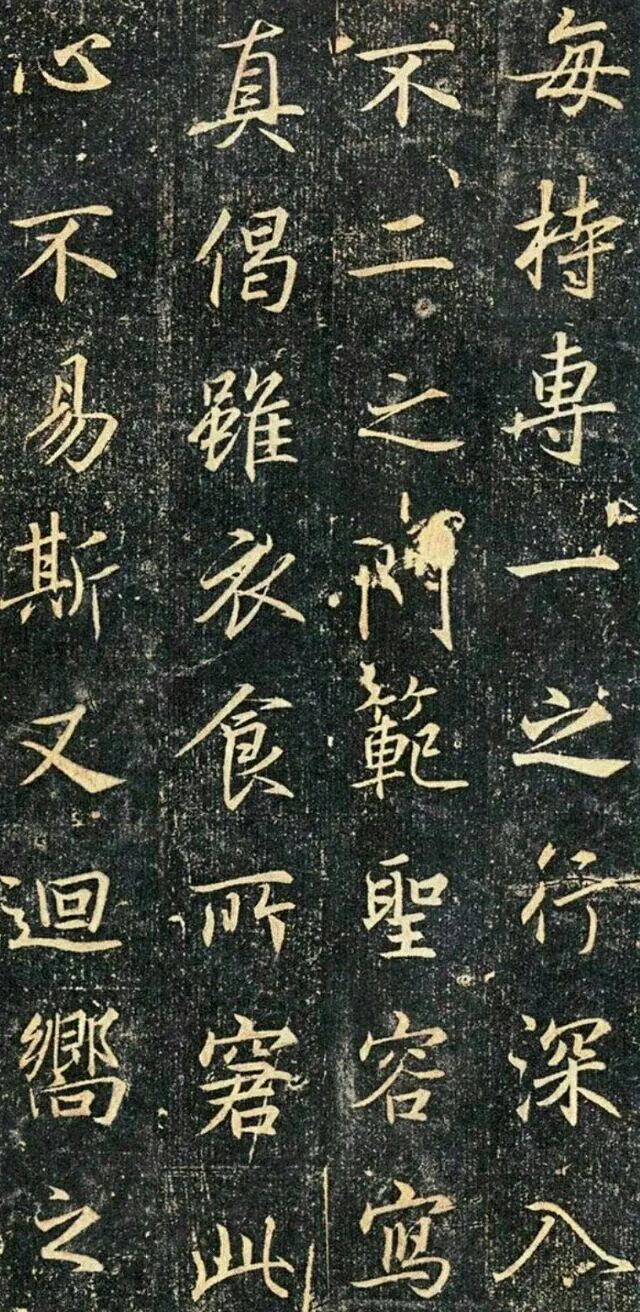 每持専一之行深入
不二之門範聖容寫
真偈雖衣食所窘此
心不易斯又迴嚮之